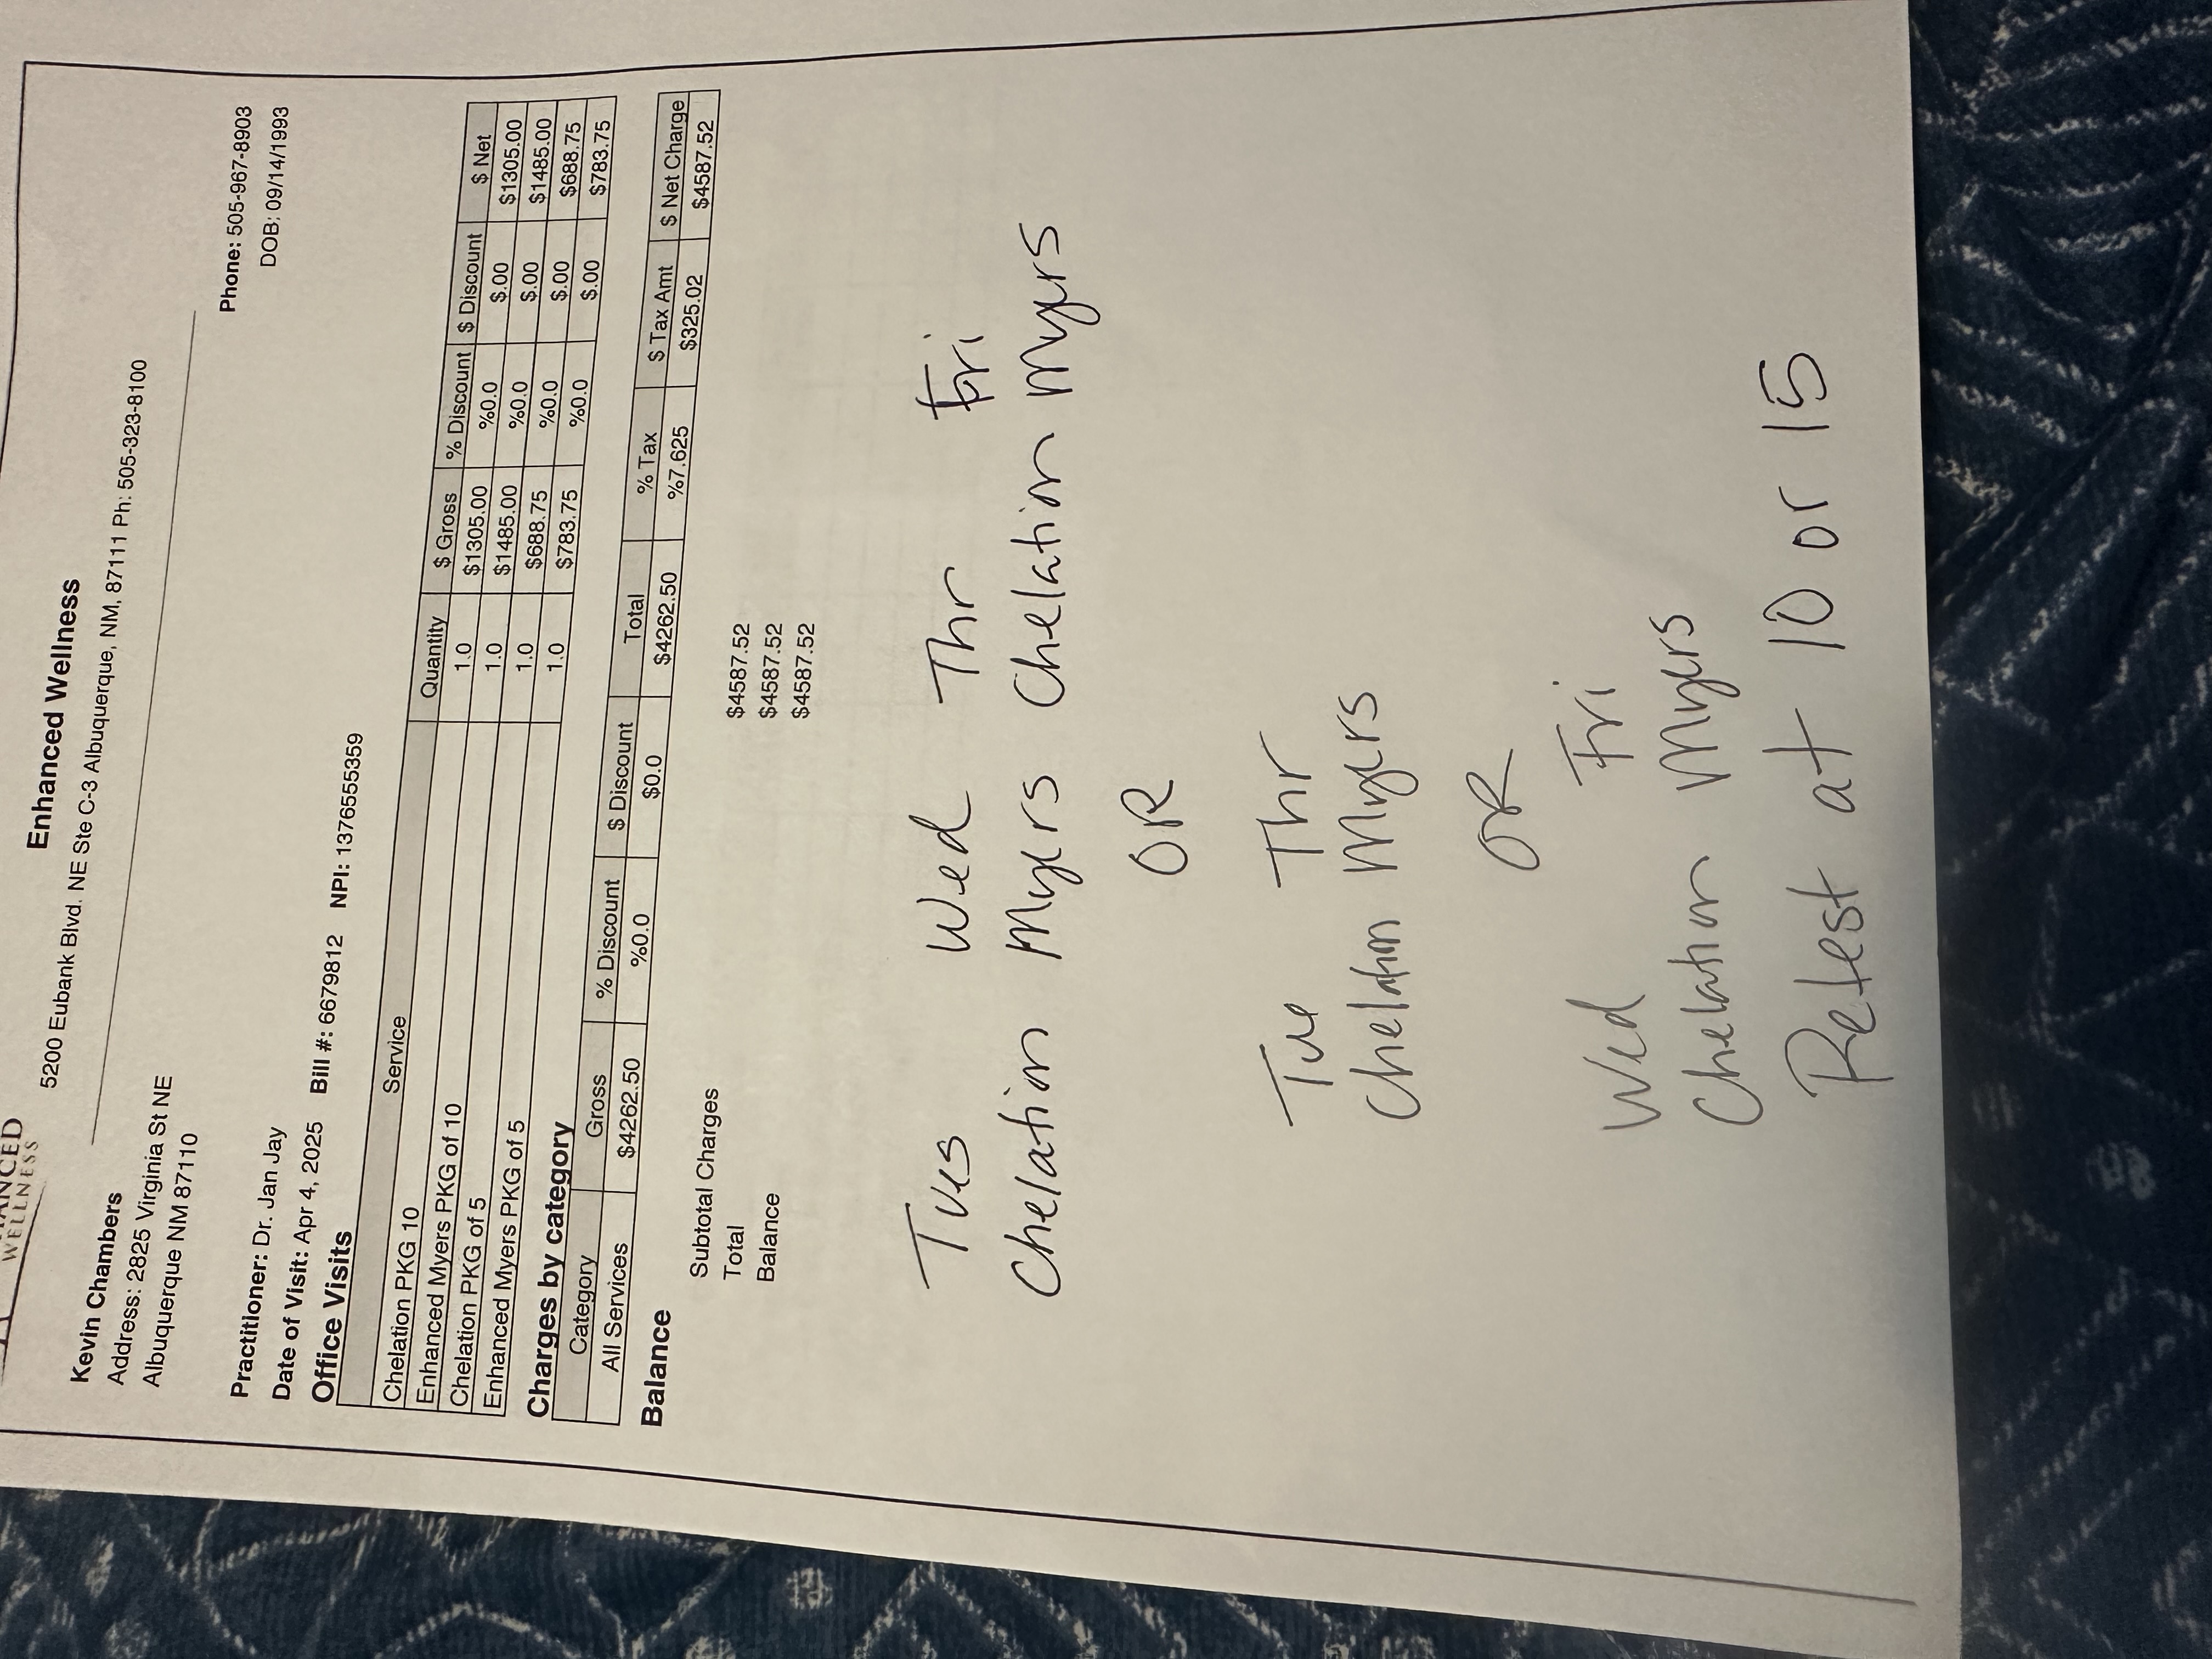 WELLNESS
Enhanced Wellness
5200 Eubank Blvd. NE Ste C-3 Albuquerque, NM, 87111 Ph: 505-323-8100
Kevin Chambers
Address: 2825 Virginia St NE
Albuquerque NM 87110
Phone: 505-967-8903
DOB: 09/14/1993
Practitioner: Dr. Jan Jay
Date of Visit: Apr 4, 2025 Bill #: 6679812 NPI: 1376555359
Office Visits
Service Quantity $ Gross % Discount $ Discount $ Net
Chelation PKG 10 1.0 $1305.00 %0.0 $.00 $1305.00
Enhanced Myers PKG of 10 1.0 $1485.00 %0.0 $.00 $1485.00
Chelation PKG of 5 1.0 $688.75 %0.0 $.00 $688.75
Enhanced Myers PKG of 5 1.0 $783.75 %0.0 $.00 $783.75
Charges by category
Category Gross % Discount $ Discount Total % Tax $ Tax Amt $ Net Charge
All Services $4262.50 %0.0 $0.0 $4262.50 %7.625 $325.02 $4587.52
Balance
Subtotal Charges $4587.52
Total $4587.52
Balance $4587.52
Tues Wed Thr Fri
Chelation Myers Chelation Myers
OR
Tue Thr
Chelation Myers
OR
Wed Fri
Chelation Myers
Retest at 10 or 15